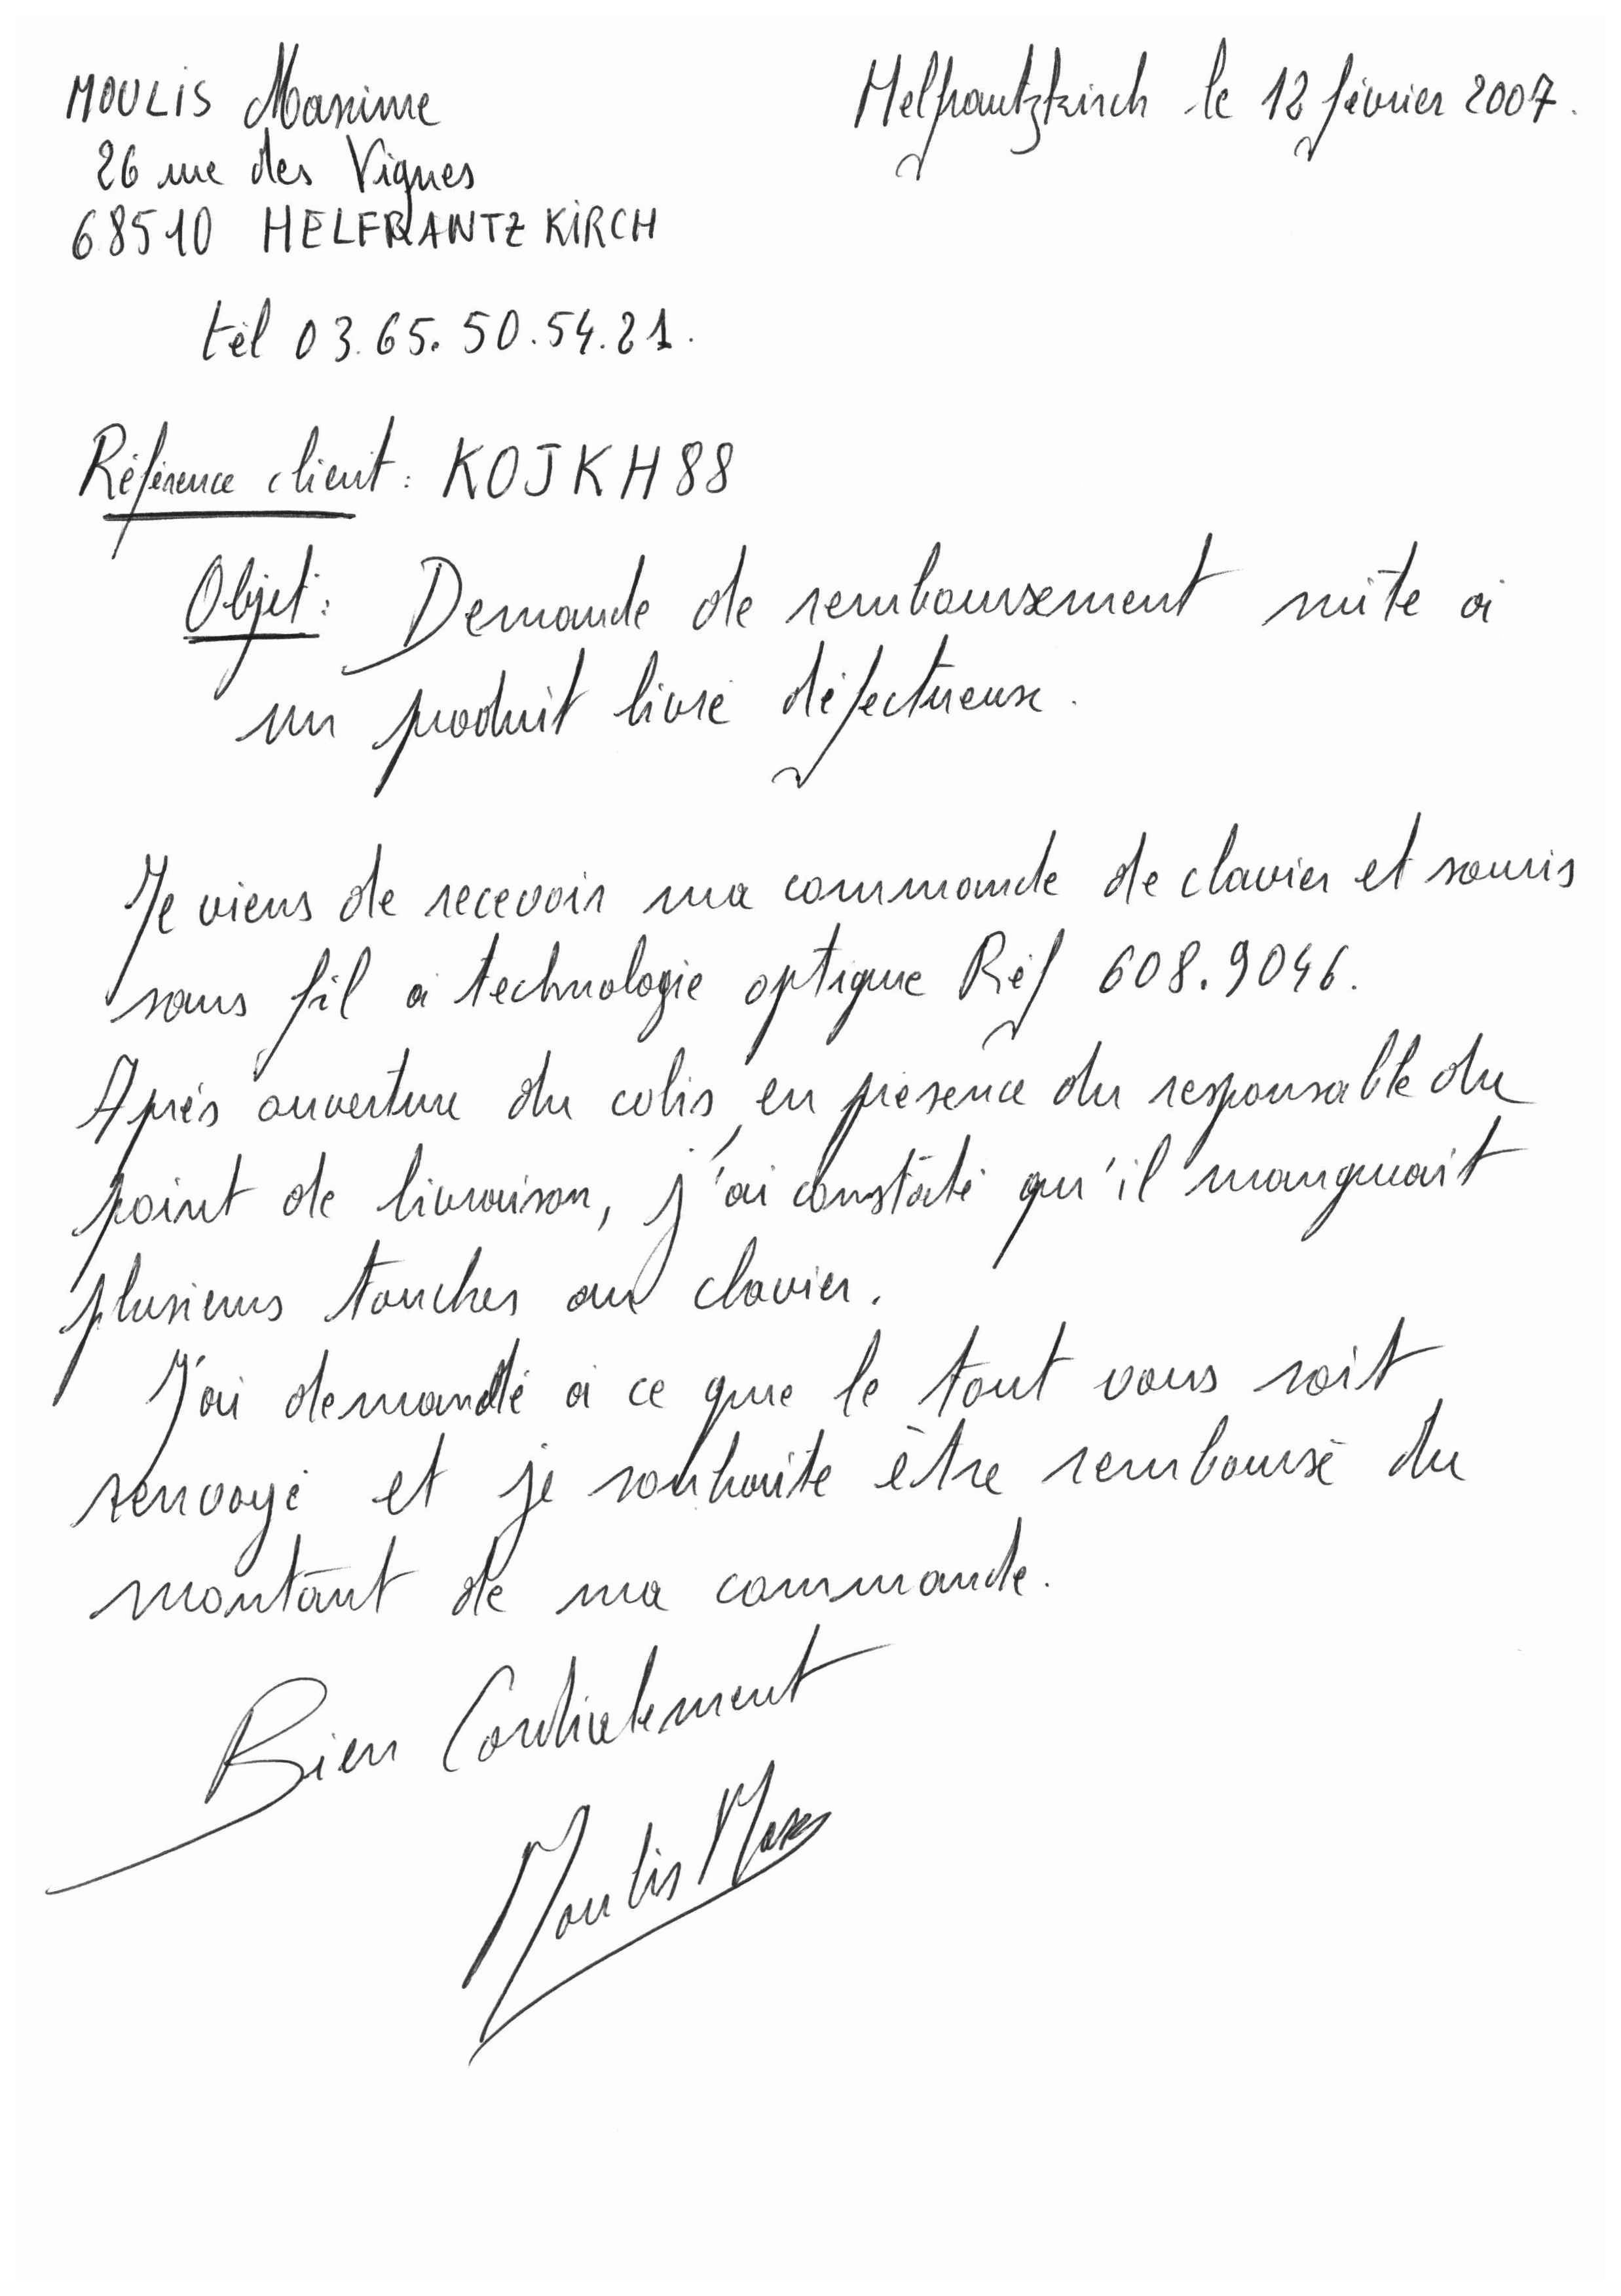 MOULIS Maxime
Helfrantzkirch le 12 février 2007.
26 rue des Vignes
68510 HELFRANTZKIRCH
tél 03.65.50.54.21.
Référence client : KOJKH88
Objet : Demande de remboursement suite à
un produit livré défectueux.
Je viens de recevoir ma commande de clavier et souris
sans fil à technologie optique Réf 608.9046.
Après ouverture du colis, en présence du responsable du
point de livraison, j'ai constaté qu'il manquait
plusieurs touches au clavier.
J'ai demandé à ce que le tout vous soit
renvoyé et je souhaite être remboursé du
montant de ma commande.
Bien Cordialement
Moulis Max